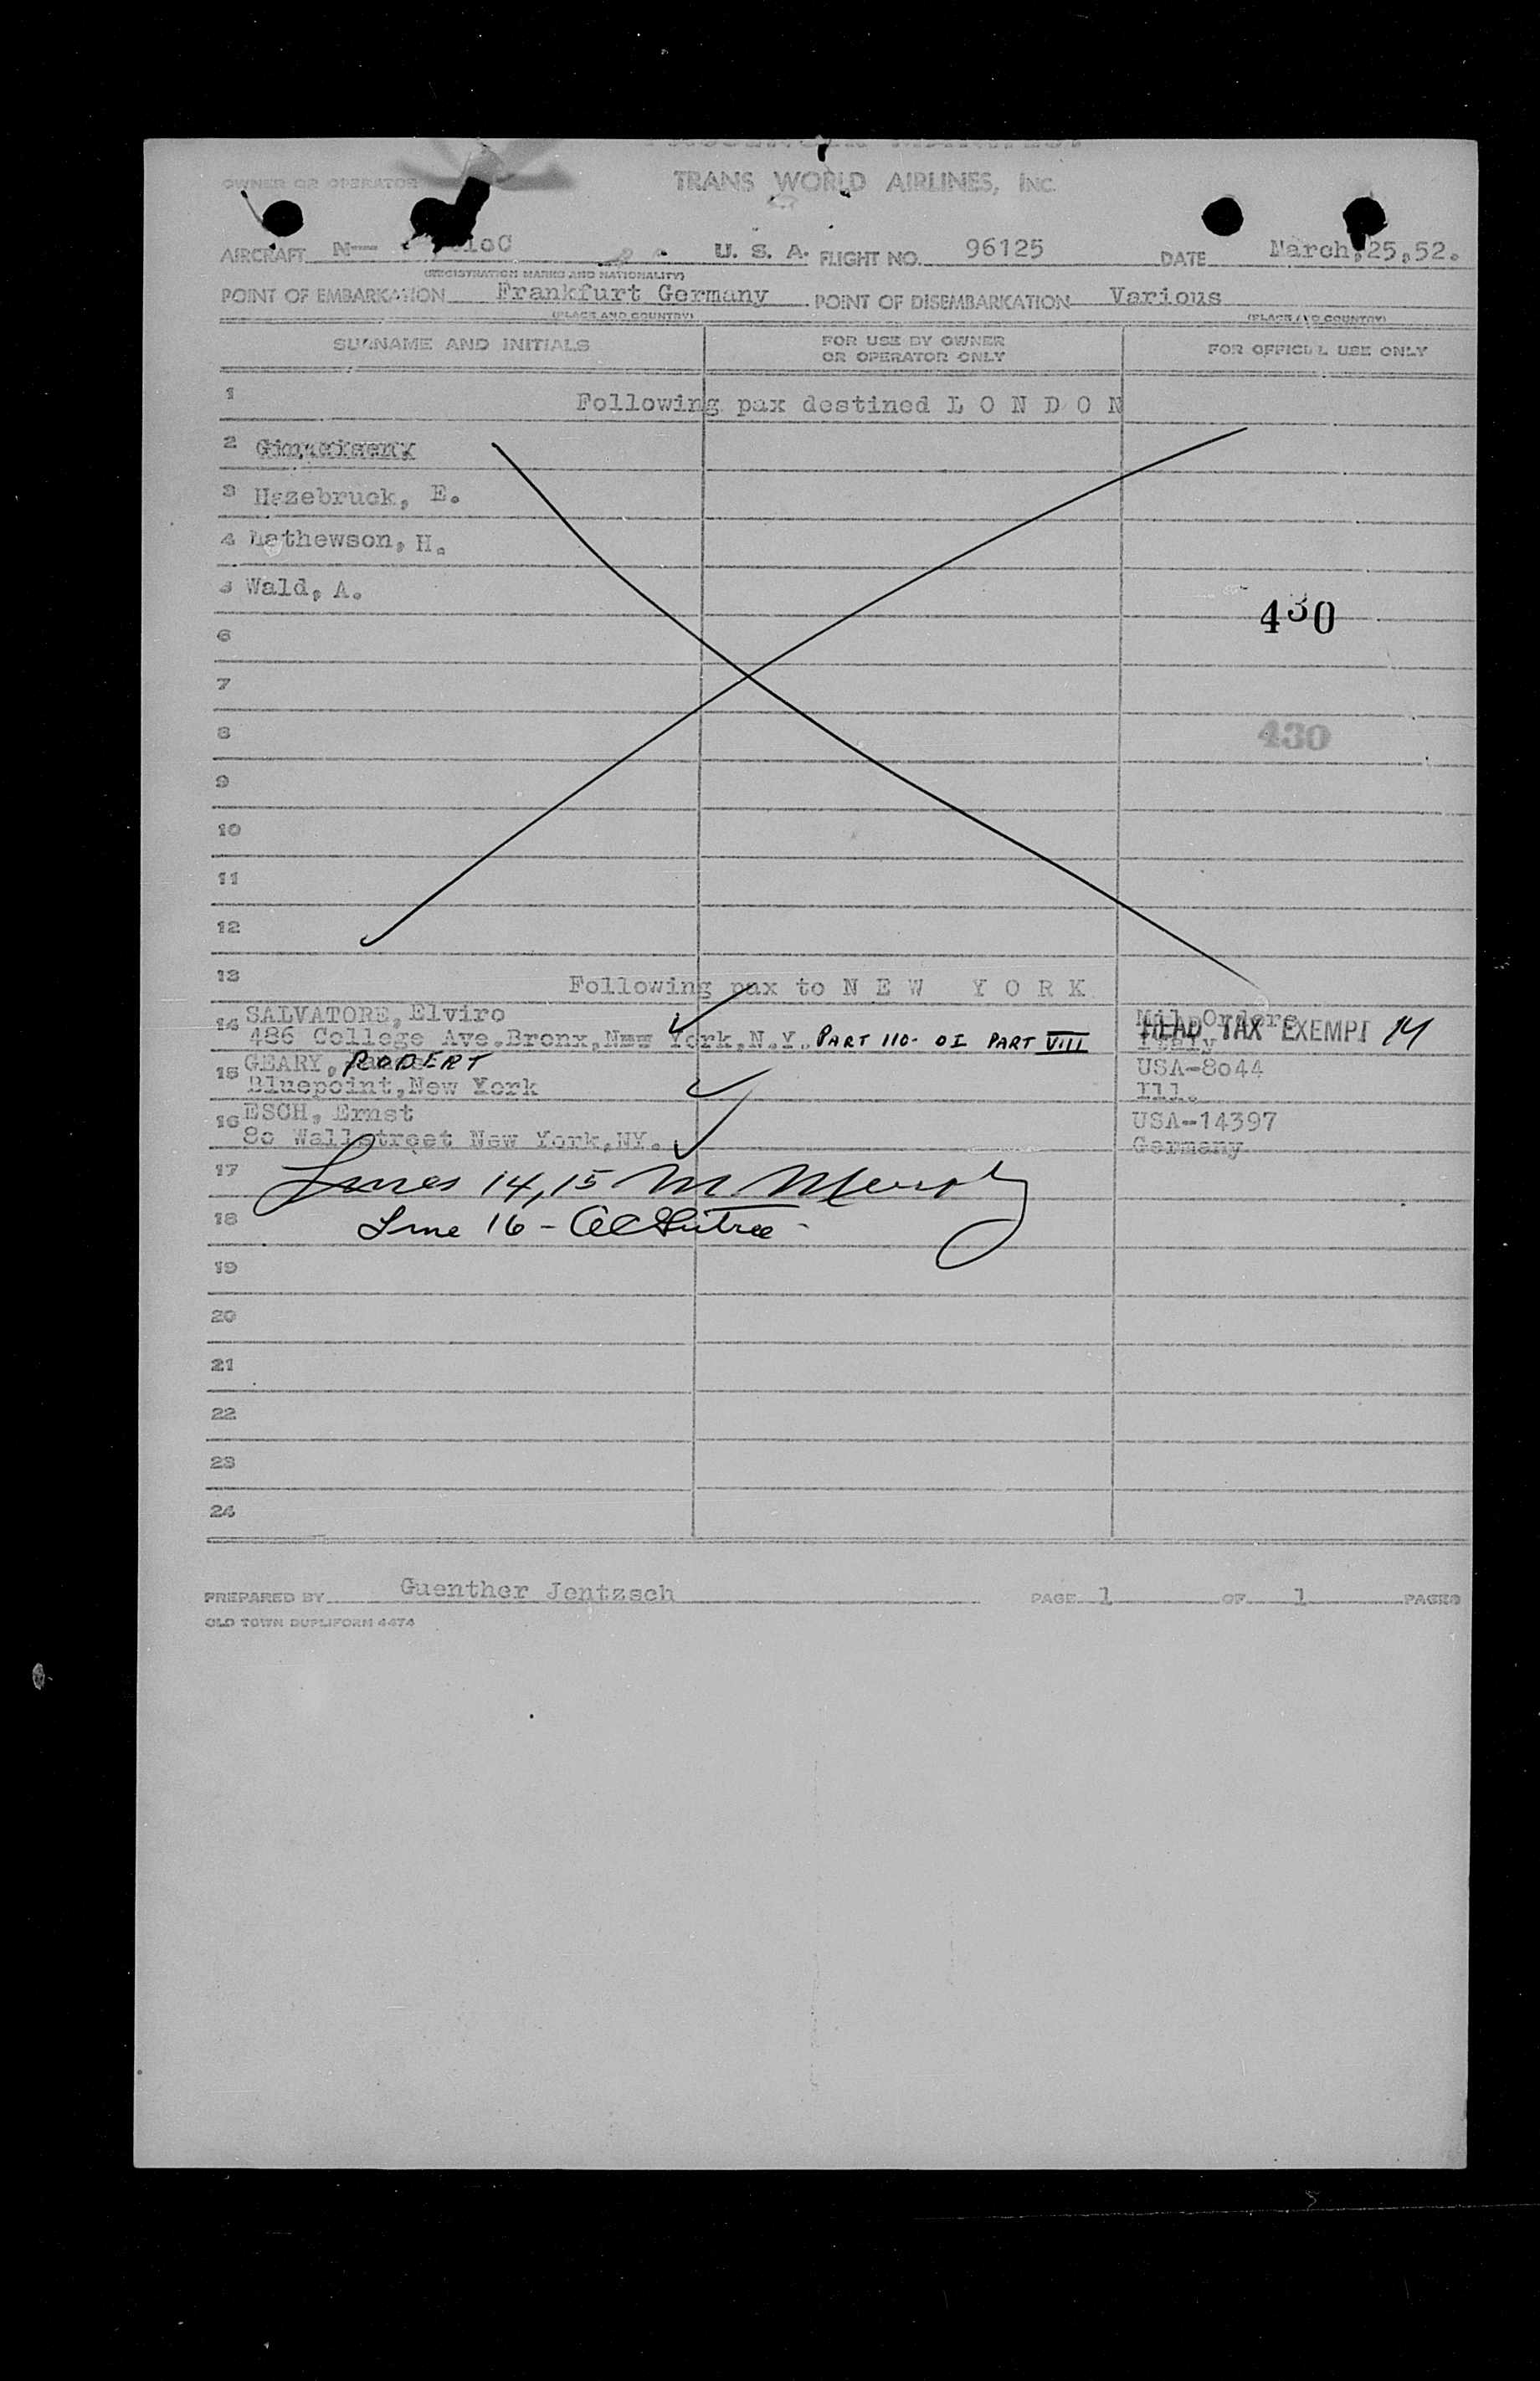 PASSENGER MANIFEST
TRANS WORLD AIRLINES, INC.
OWNER OR OPERATOR
AIRCRAFT N-- U. S. A. FLIGHT NO. 96125 DATE March,25,52.
(REGISTRATION MARKS AND NATIONALITY)
POINT OF EMBARKATION Frankfurt Germany POINT OF DISEMBARKATION Various
(PLACE AND COUNTRY) (PLACE AND COUNTRY)
SURNAME AND INITIALS FOR USE BY OWNER OR OPERATOR ONLY FOR OFFICIAL USE ONLY
1 Following pax destined L O N D O N
2
3 Hazebruck, E.
4 Mathewson, H.
5 Wald, A.
430
6
7
8 430
9
10
11
12
13 Following pax to N E W Y O R K
14 SALVATORE, Elviro Mil.Orders
486 College Ave.Bronx,New York,N.Y. PART 110- OI PART VIII Italy
HEAD TAX EXEMPT 14
15 GEARY, ROBERT USA-8044
Bluepoint,New York Ill.
16 ESCH, Ernst USA-14397
80 Wallstreet New York,NY. Germany
17 Lines 14,15 M Murphy
18 Line 16 -
19
20
21
22
23
24
PREPARED BY Guenther Jentzsch PAGE 1 OF 1 PAGES
OLD TOWN DUPLIFORM 4474